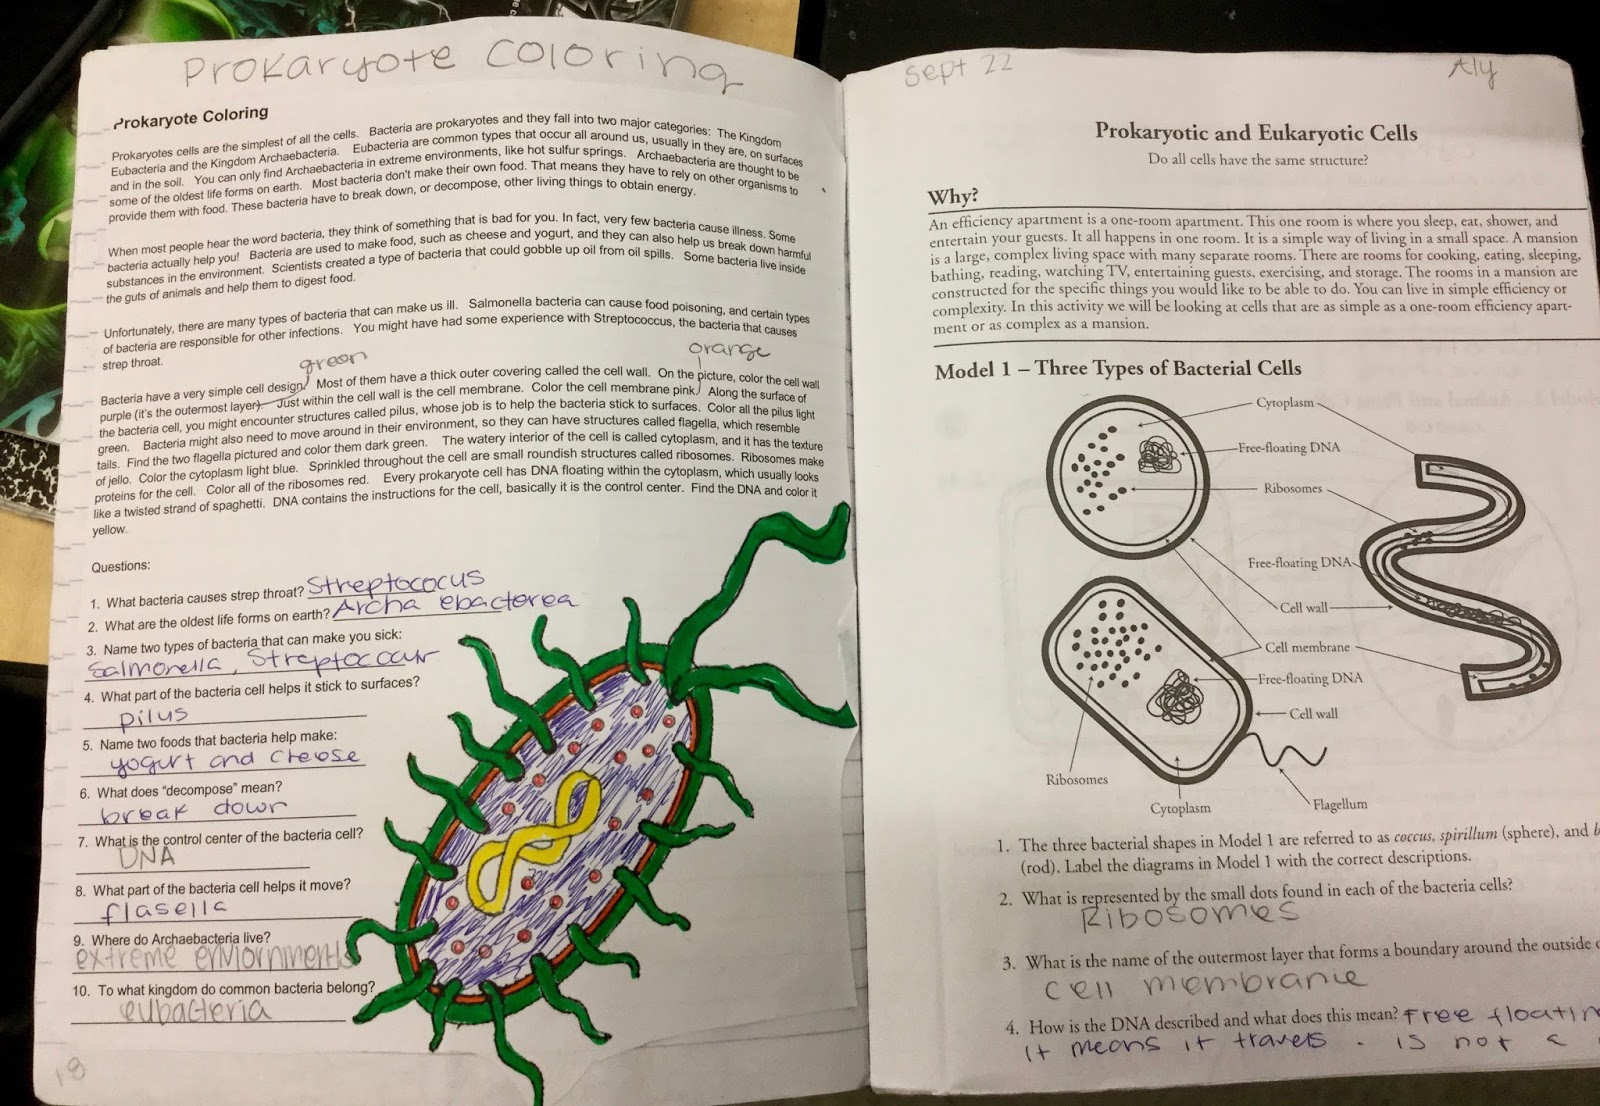 Prokaryote Coloring
Prokaryote Coloring
Prokaryotes cells are the simplest of all the cells. Bacteria are prokaryotes and they fall into two major categories: The Kingdom
Eubacteria and the Kingdom Archaebacteria. Eubacteria are common types that occur all around us, usually in they are, on surfaces
and in the soil. You can only find Archaebacteria in extreme environments, like hot sulfur springs. Archaebacteria are thought to be
some of the oldest life forms on earth. Most bacteria don't make their own food. That means they have to rely on other organisms to
provide them with food. These bacteria have to break down, or decompose, other living things to obtain energy.
When most people hear the word bacteria, they think of something that is bad for you. In fact, very few bacteria cause illness. Some
bacteria actually help you! Bacteria are used to make food, such as cheese and yogurt, and they can also help us break down harmful
substances in the environment. Scientists created a type of bacteria that could gobble up oil from oil spills. Some bacteria live inside
the guts of animals and help them to digest food.
Unfortunately, there are many types of bacteria that can make us ill. Salmonella bacteria can cause food poisoning, and certain types
of bacteria are responsible for other infections. You might have had some experience with Streptococcus, the bacteria that causes
strep throat.
green
orange
Bacteria have a very simple cell design. Most of them have a thick outer covering called the cell wall. On the picture, color the cell wall
purple (it's the outermost layer). Just within the cell wall is the cell membrane. Color the cell membrane pink. Along the surface of
the bacteria cell, you might encounter structures called pilus, whose job is to help the bacteria stick to surfaces. Color all the pilus light
green. Bacteria might also need to move around in their environment, so they can have structures called flagella, which resemble
tails. Find the two flagella pictured and color them dark green. The watery interior of the cell is called cytoplasm, and it has the texture
of jello. Color the cytoplasm light blue. Sprinkled throughout the cell are small roundish structures called ribosomes. Ribosomes make
proteins for the cell. Color all of the ribosomes red. Every prokaryote cell has DNA floating within the cytoplasm, which usually looks
like a twisted strand of spaghetti. DNA contains the instructions for the cell, basically it is the control center. Find the DNA and color it
yellow.
Questions:
1. What bacteria causes strep throat? Streptococus
2. What are the oldest life forms on earth? Archa ebacterea
3. Name two types of bacteria that can make you sick:
Salmonella, Streptococur
4. What part of the bacteria cell helps it stick to surfaces?
pilus
5. Name two foods that bacteria help make:
yogurt and cheese
6. What does "decompose" mean?
break down
7. What is the control center of the bacteria cell?
DNA
8. What part of the bacteria cell helps it move?
flagella
9. Where do Archaebacteria live?
extreme
10. To what kingdom do common bacteria belong?
eubacteria
18
Sept 22
Aly
Prokaryotic and Eukaryotic Cells
Do all cells have the same structure?
Why?
An efficiency apartment is a one-room apartment. This one room is where you sleep, eat, shower, and
entertain your guests. It all happens in one room. It is a simple way of living in a small space. A mansion
is a large, complex living space with many separate rooms. There are rooms for cooking, eating, sleeping,
bathing, reading, watching TV, entertaining guests, exercising, and storage. The rooms in a mansion are
constructed for the specific things you would like to be able to do. You can live in simple efficiency or
complexity. In this activity we will be looking at cells that are as simple as a one-room efficiency apart-
ment or as complex as a mansion.
Model 1 – Three Types of Bacterial Cells
Cytoplasm
Free-floating DNA
Ribosomes
Free-floating DNA
Cell wall
Cell membrane
Free-floating DNA
Cell wall
Ribosomes
Cytoplasm
Flagellum
1. The three bacterial shapes in Model 1 are referred to as coccus, spirillum (sphere), and b
(rod). Label the diagrams in Model 1 with the correct descriptions.
2. What is represented by the small dots found in each of the bacteria cells?
Ribosomes
3. What is the name of the outermost layer that forms a boundary around the outside
cell membrane
4. How is the DNA described and what does this mean? Free floatin
It means it travels. is not a